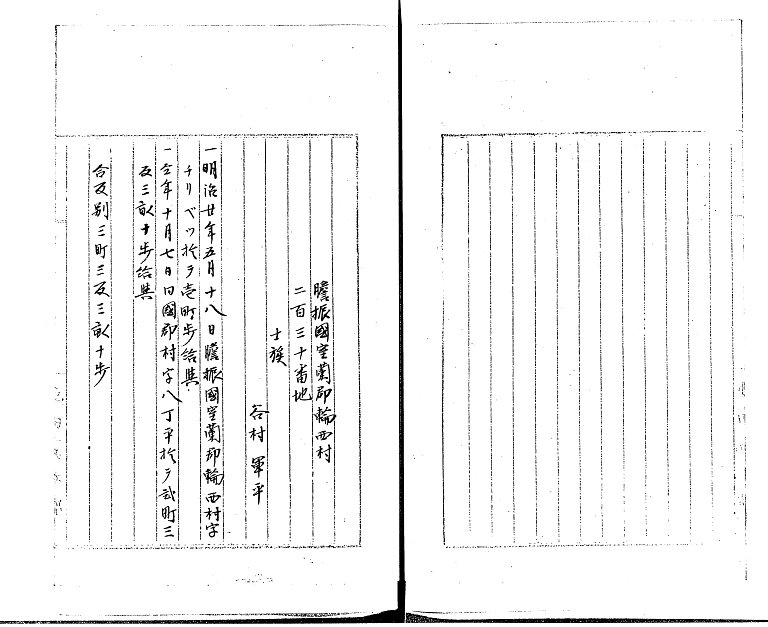 膽振國室蘭郡輪西村
二百三十番地
士族
谷村軍平
一明治廿年五月十八日膽振國室蘭郡輪西村字
チリベツ於テ壱町歩給與
一仝年十月七日同國郡村字八丁平於テ貳町三
反三畝十歩給與
合反別三町三反三畝十歩